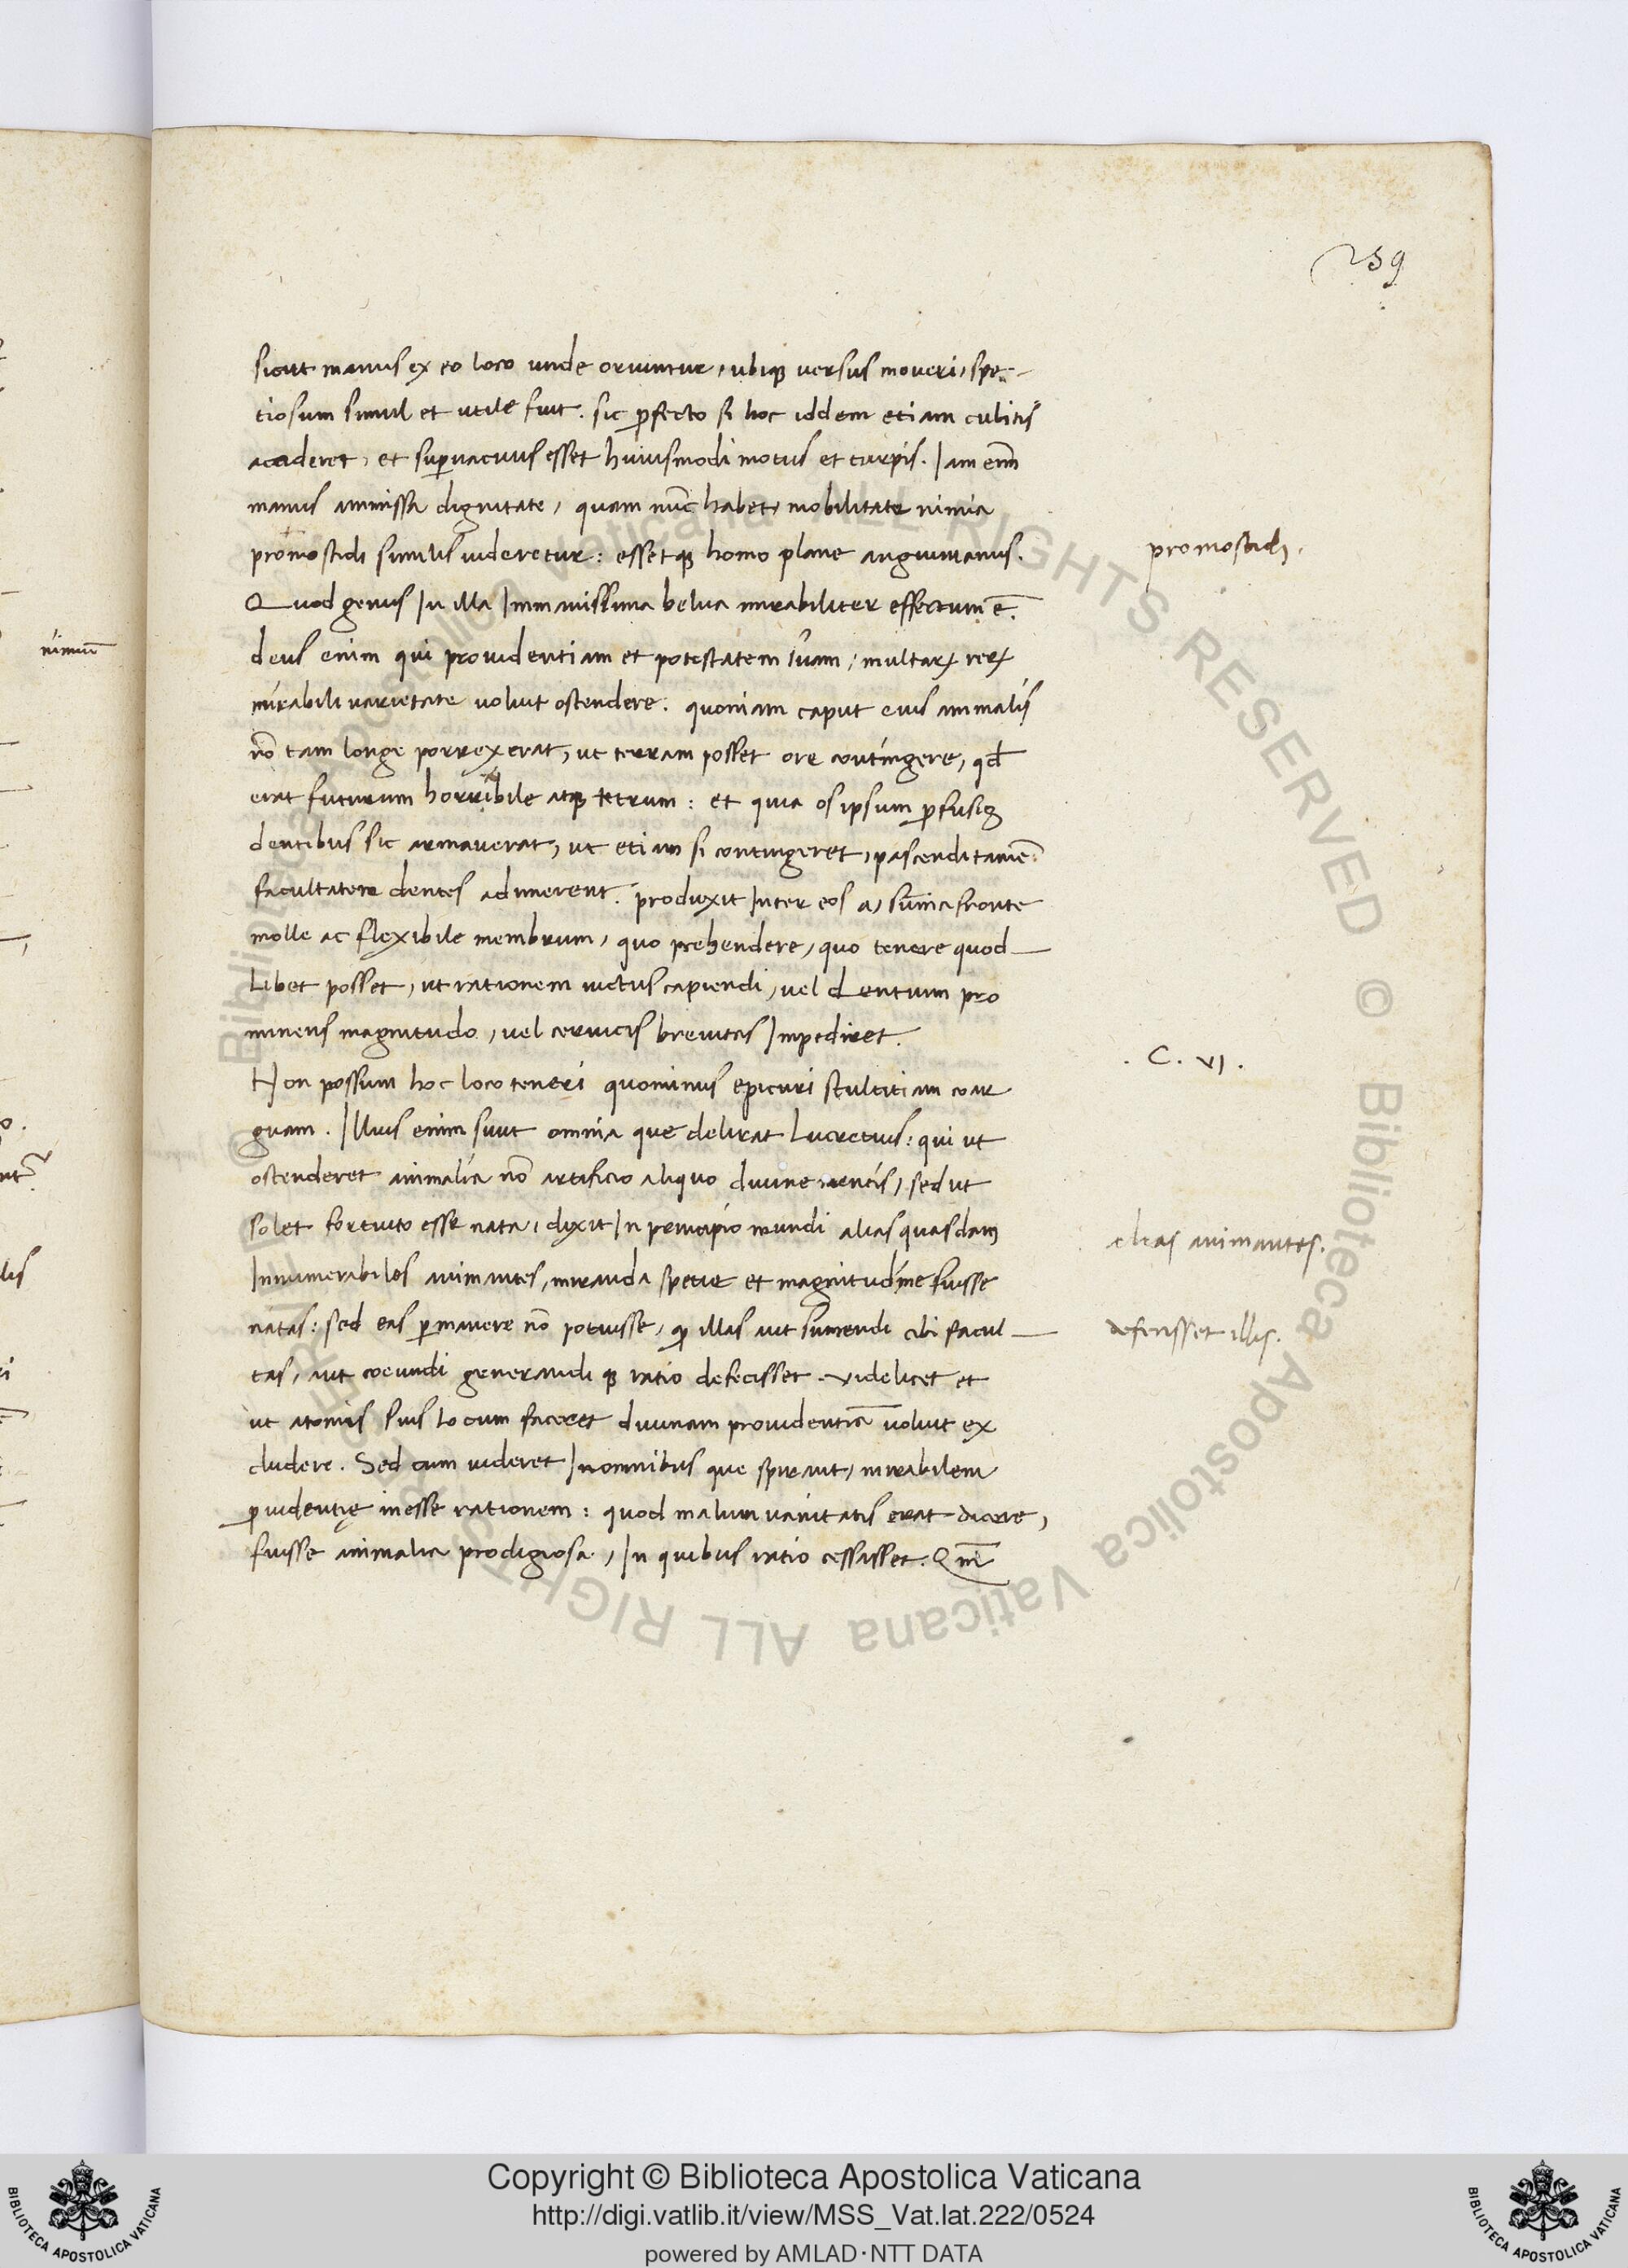 259
sicut manus ex eo loco unde oriuntur, ubiqꝫ versus moveri, spe-
tiosum simul et utile fuit. sic ꝓfecto si hoc iddem etiam cubitis
accideret, et suꝑvacuus esset huiusmodi motus et turpis. Iam enĩ
manus ammissa dignitate, quam nũc habet, mobilitate nimia
promostidi similis videretur: essetqꝫ homo plane anguimanus.
promostidi.
Quod genus In illa Immanissima belua mirabiliter effectum ẽ.
deus enim qui providentiam et potestatem suam, multaꝝ reꝝ
nimiũ
mirabili varietate voluit ostendere: quoniam caput eius animalis
nõ tam longe porrexerat, ut terram posset ore contingere, qđ
erat futurum horribile atqꝫ tetrum: et quia os ipsum ꝓfusis
dentibus sic armaverat, ut etiam si contingeret, pascendi tamẽ
facultatem dentes adimerent: produxit Inter eos a, sũma fronte
molle ac flexibile membrum, quo prehendere, quo tenere quod
libet posset, ut rationem victus capiendi, vel dentium pro
minens magnitudo, vel cervicis brevitas Impediret.
. C. VI .
Non possum hoc loco teneri quominus epicuri stultitiam coar
guam. Illius enim sunt omnia que delirat Lucretius: qui ut
ostenderet animalia nõ artificio aliquo divine mentis, sed ut
solet fortuito esse nata, dixit In principio mundi alias quasdam
alias animantes.
Innumerabiles animantes, miranda spetie et magnitudine fuisse
natas: sed eas ꝑmanere nõ potuisse, qꝫ illas aut sumendi cibi facul
defecisset illis.
tas, aut coeundi generandi qꝫ ratio defecisset. videlicet et
ut atomis suis locum faceret divinam providentiã voluit ex
cludere. Sed cum videret In omnibus que spirant, mirabilem
ꝓvidentię inesse rationem: quod malum vanitatis erat dicere,
fuisse animalia prodigiosa, In quibus ratio cessasset. Qm̃
© Biblioteca Apostolica Vaticana ALL RIGHTS RESERVED © Biblioteca Apostolica Vaticana ALL RIGHTS RESERVED
Copyright © Biblioteca Apostolica Vaticana
http://digi.vatlib.it/view/MSS_Vat.lat.222/0524
powered by AMLAD·NTT DATA
BIBLIOTECA APOSTOLICA VATICANA
BIBLIOTECA APOSTOLICA VATICANA